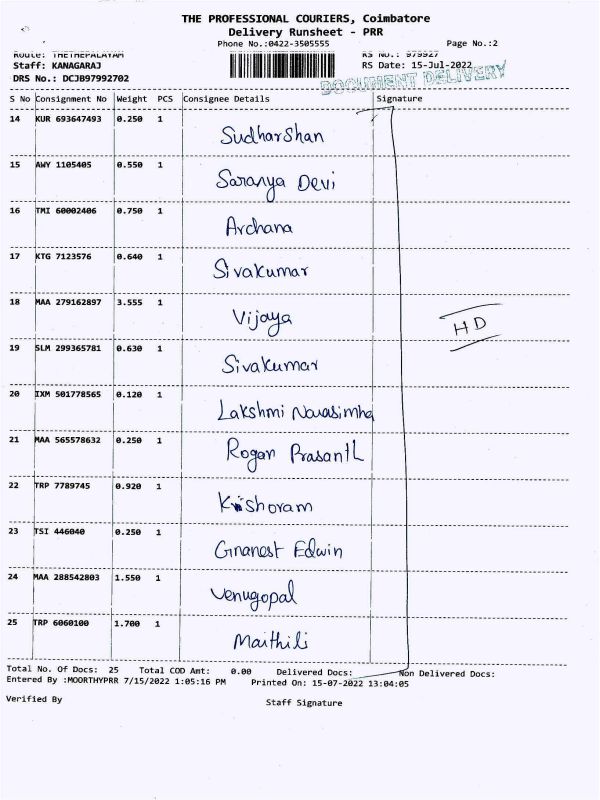 THE PROFESSIONAL COURIERS, Coimbatore
Delivery Runsheet - PRR
Phone No.:0422-3505555 Page No.:2
Route: THETHEPALAYAM RS No.: 979927
Staff: KANAGARAJ RS Date: 15-Jul-2022
DRS No.: DCJB97992702 DOCUMENT DELIVERY
S No Consignment No Weight PCS Consignee Details Signature
14 KUR 693647493 0.250 1 Sudharshan
15 AWY 1105405 0.550 1 Saranya Devi
16 TMI 60002406 0.750 1 Archana
17 KTG 7123576 0.640 1 Sivakumar
18 MAA 279162897 3.555 1 Vijaya
HD
19 SLM 299365781 0.630 1 Sivakumar
20 IXM 501778565 0.120 1 Lakshmi Narasimha
21 MAA 565578632 0.250 1 Rogan Prasanth
22 TRP 7789745 0.920 1 Kishoram
23 TSI 446040 0.250 1 Gnanest Edwin
24 MAA 288542803 1.550 1 Venugopal
25 TRP 6060100 1.700 1 Maithili
Total No. Of Docs: 25 Total COD Amt: 0.00 Delivered Docs: Non Delivered Docs:
Entered By :MOORTHYPRR 7/15/2022 1:05:16 PM Printed On: 15-07-2022 13:04:05
Verified By Staff Signature